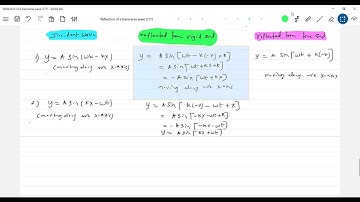 Reflection of a transverse wave (1/7)
Incident wave
Reflected from rigid end
Reflected from free end
1) y = A sin (wt - kx)
(moving along +ve x-axis)
y = A sin [ wt - k(-x) + π ]
= A sin [ wt + kx + π ]
= - A sin [ wt + kx ]
moving along -ve x-axis
y = A sin [ wt + k(-x)
moving along -ve x-axis)
2) y = A sin (kx - wt)
(moving along +ve x-axis)
y = A sin [ k(-x) - wt + π ]
= A sin [ -kx - wt + π ]
= - A sin [ -kx - wt ]
y = A sin [ kx + wt ]